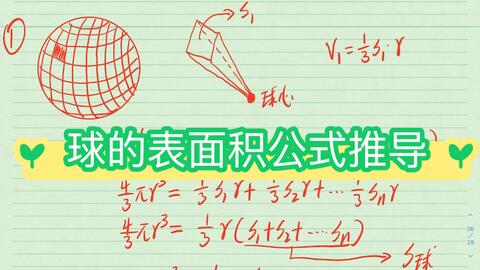 ①
S₁
V₁=⅓S₁·r
球心
球的表面积公式推导
4/3πr³ = ⅓S₁r + ⅓S₂r + … ⅓Sₙr
4/3πr³ = ⅓r(S₁+S₂+…Sₙ)
S球
26
/
29